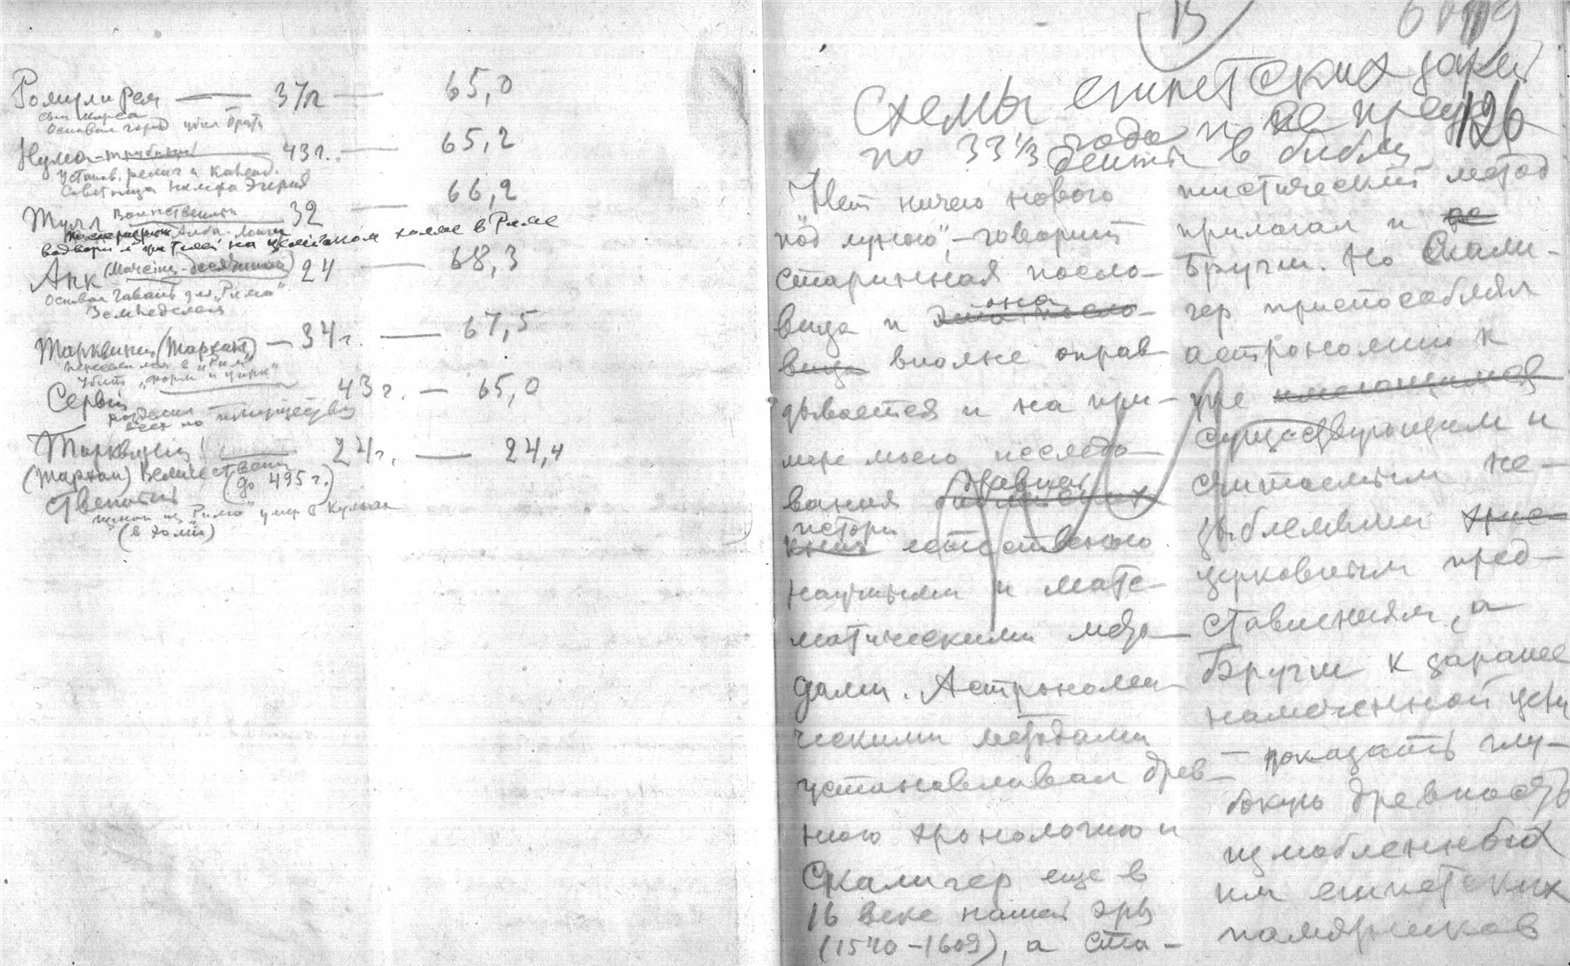 Ромул и Рем — 37 л — 65,0
сын Марса
Основал город убил брата
Нума — 43 г. — 65,2
Установ. религ. и календ.
Советница нимфа Эгерия
Тулл Воинственный 32 — 66,2
на Целийском холме в Риме
Анк 24 — 68,3
Основал гавань для „Рима“
Земледелец
Тарквиний (Тархан) — 34 г. — 67,5
Сервий 43 г. — 65,0
всех по имуществу
Тарквиний 24 г. — 24,4
(Тархан) Величест
ственный (до 495 г.)
из „Рима“ умер в Кумах
15
126
Схемы египетских
по 33 1/3 года и
в библ
Нет ничего нового
под луною“ – говорит
старинная посло-
вица и она
вполне оправ-
дывается и на при-
мере моего исследо-
вания древней
истори естественно
научными и мате-
матическими мето-
дами. Астрономи-
ческими методами
устанавливал древ-
нюю хронологию и
Скалигер еще в
16 веке нашей эры
(1540–1609), а ста-
тистический метод
прилагал и
Бругш. Но Скали-
гер приспособлял
астрономию к
уже
существующим и
считаемым не-
зыблемыми
церковным пред-
ставлениям, а
Бругш к заранее
намеченной цели
— показать глу-
бокую древность
излюбленных
им египетских
памятников